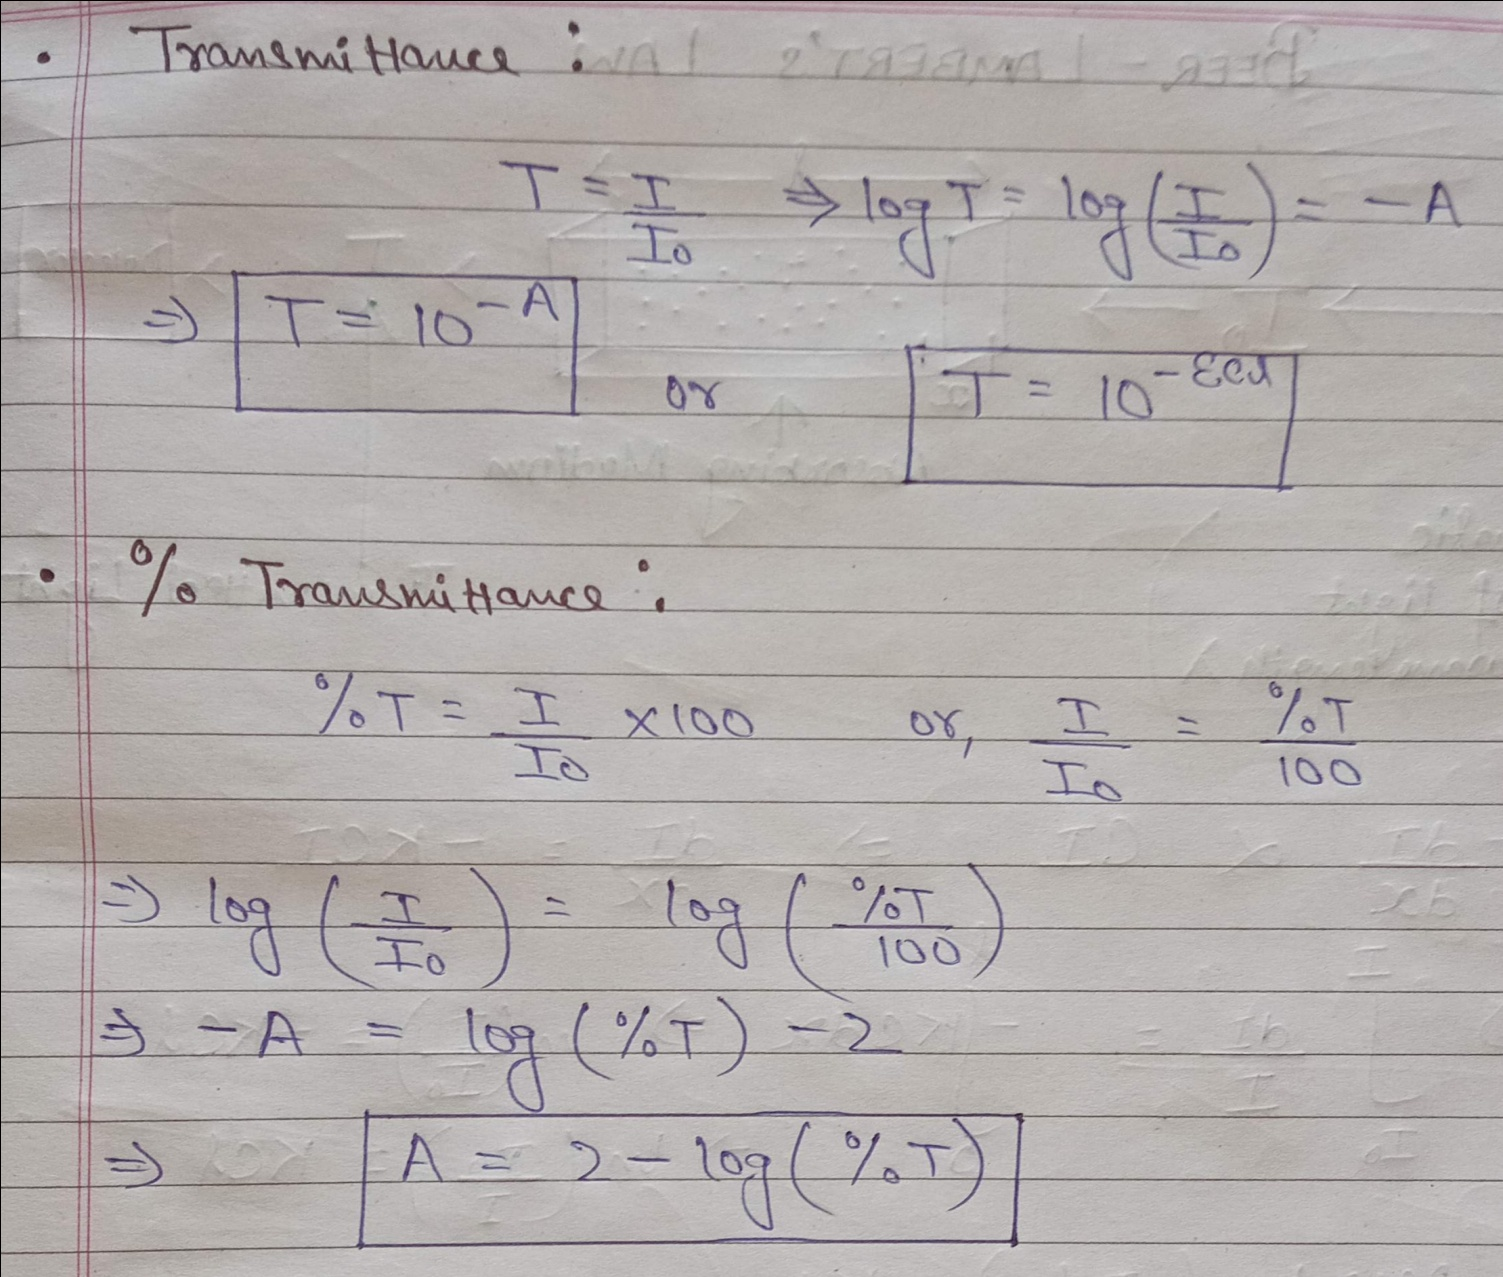 • Transmittance :
T = I/I₀ ⇒ log T = log(I/I₀) = -A
⇒ T = 10^-A
or T = 10^-εcl
• % Transmittance :
%T = I/I₀ × 100 or, I/I₀ = %T/100
⇒ log(I/I₀) = log(%T/100)
⇒ -A = log(%T) - 2
⇒ A = 2 - log(%T)